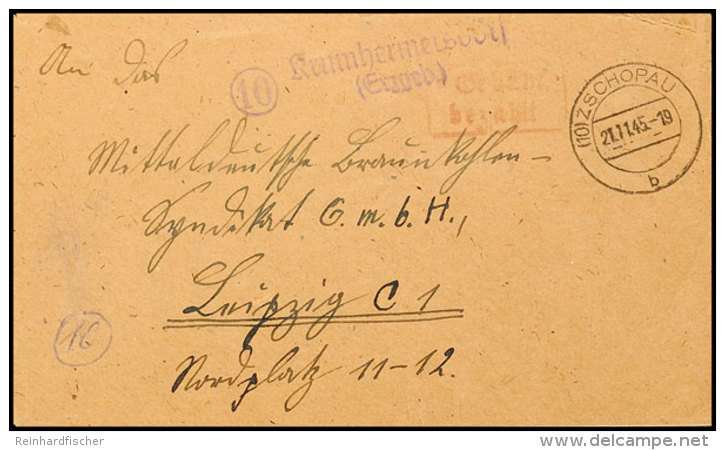 An das
10 Krumhermersdorf
(Erzgeb.)
Gebühr
bezahlt
(10) ZSCHOPAU
21.11.45.-19
b
Mitteldeutsche Braunkohlen-
Syndikat G.m.b.H.,
Leipzig C 1
Nordplatz 11-12.
16
Reinhardfischer
www.delcampe.net